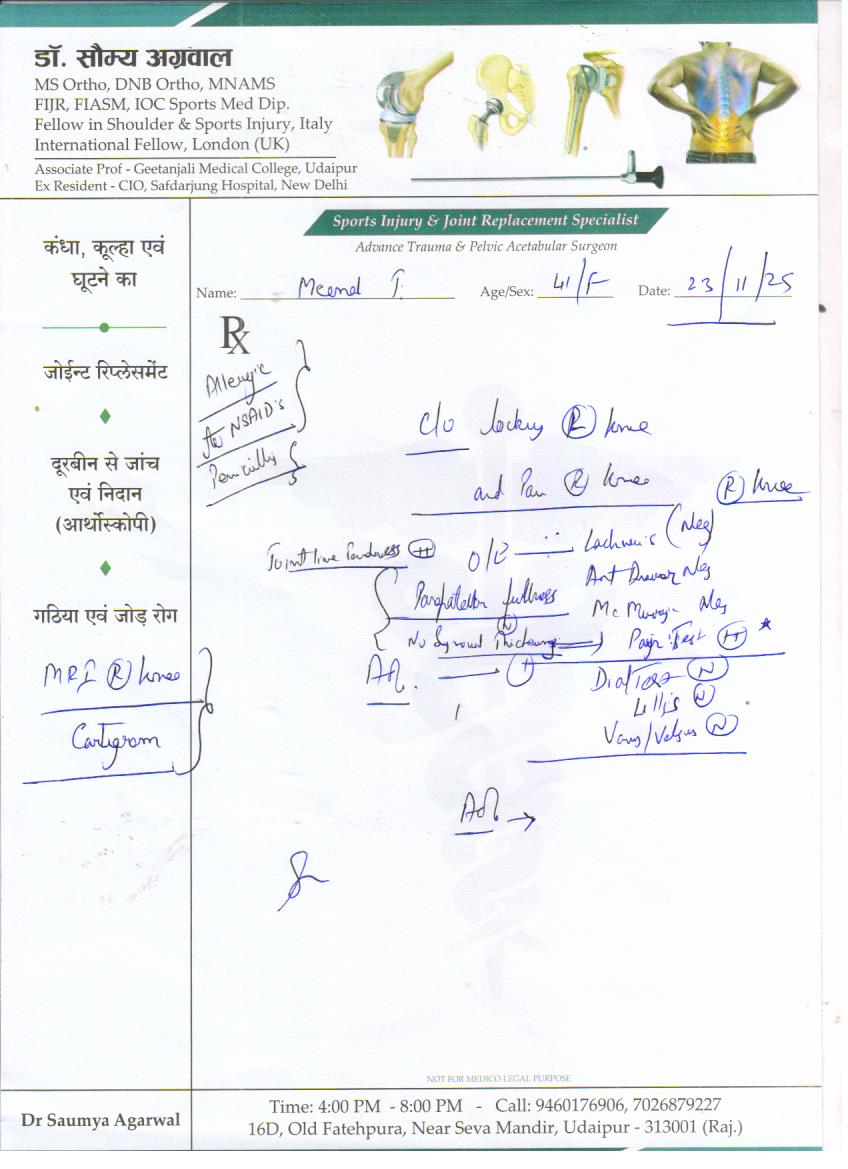 डॉ. सौम्य अग्रवाल
MS Ortho, DNB Ortho, MNAMS
FIJR, FIASM, IOC Sports Med Dip.
Fellow in Shoulder & Sports Injury, Italy
International Fellow, London (UK)
Associate Prof - Geetanjali Medical College, Udaipur
Ex Resident - CIO, Safdarjung Hospital, New Delhi
Sports Injury & Joint Replacement Specialist
Advance Trauma & Pelvic Acetabular Surgeon
Name: Meenal T. Age/Sex: 41/F Date: 23/11/25
कंधा, कूल्हा एवं
घूटने का
जोईन्ट रिप्लेसमेंट
दूरबीन से जांच
एवं निदान
(आर्थोस्कोपी)
गठिया एवं जोड़ रोग
MRI (R) knee
Cartigram
Rx
Allergic
to NSAID's
C/O locking (R) knee
and Pain (R) knee
(R) knee
Joint line tenderness
O/E
Lachmen's (Neg)
Ant Drawer Neg
Neg
fullness
No Thickening
Test
(N)
(N)
Varus/Valgus (N)
NOT FOR MEDICO LEGAL PURPOSE
Dr Saumya Agarwal
Time: 4:00 PM - 8:00 PM - Call: 9460176906, 7026879227
16D, Old Fatehpura, Near Seva Mandir, Udaipur - 313001 (Raj.)